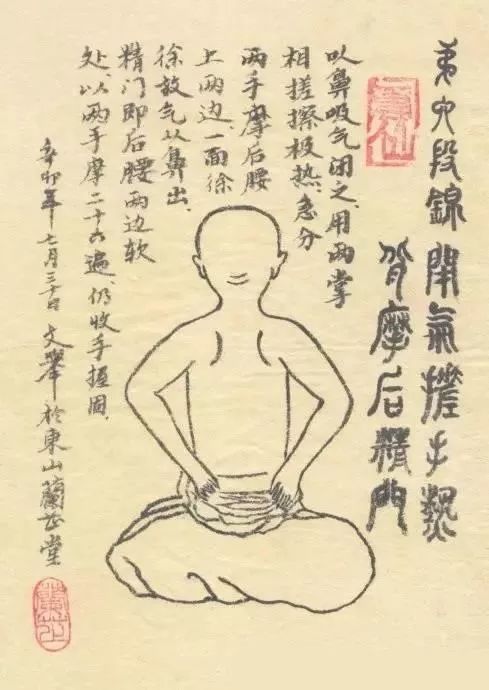 弟六段錦 閉氣搓手熱
背摩后精門
以鼻吸气闭之、用两掌
相搓擦极热急分
两手摩后腰
上两边、一面徐
徐放气从鼻出、
精门即后腰两边软
处、以两手摩二十六遍、仍收手握固、
辛卯年七月三十日文举於東山蘭芷堂
蘭芷